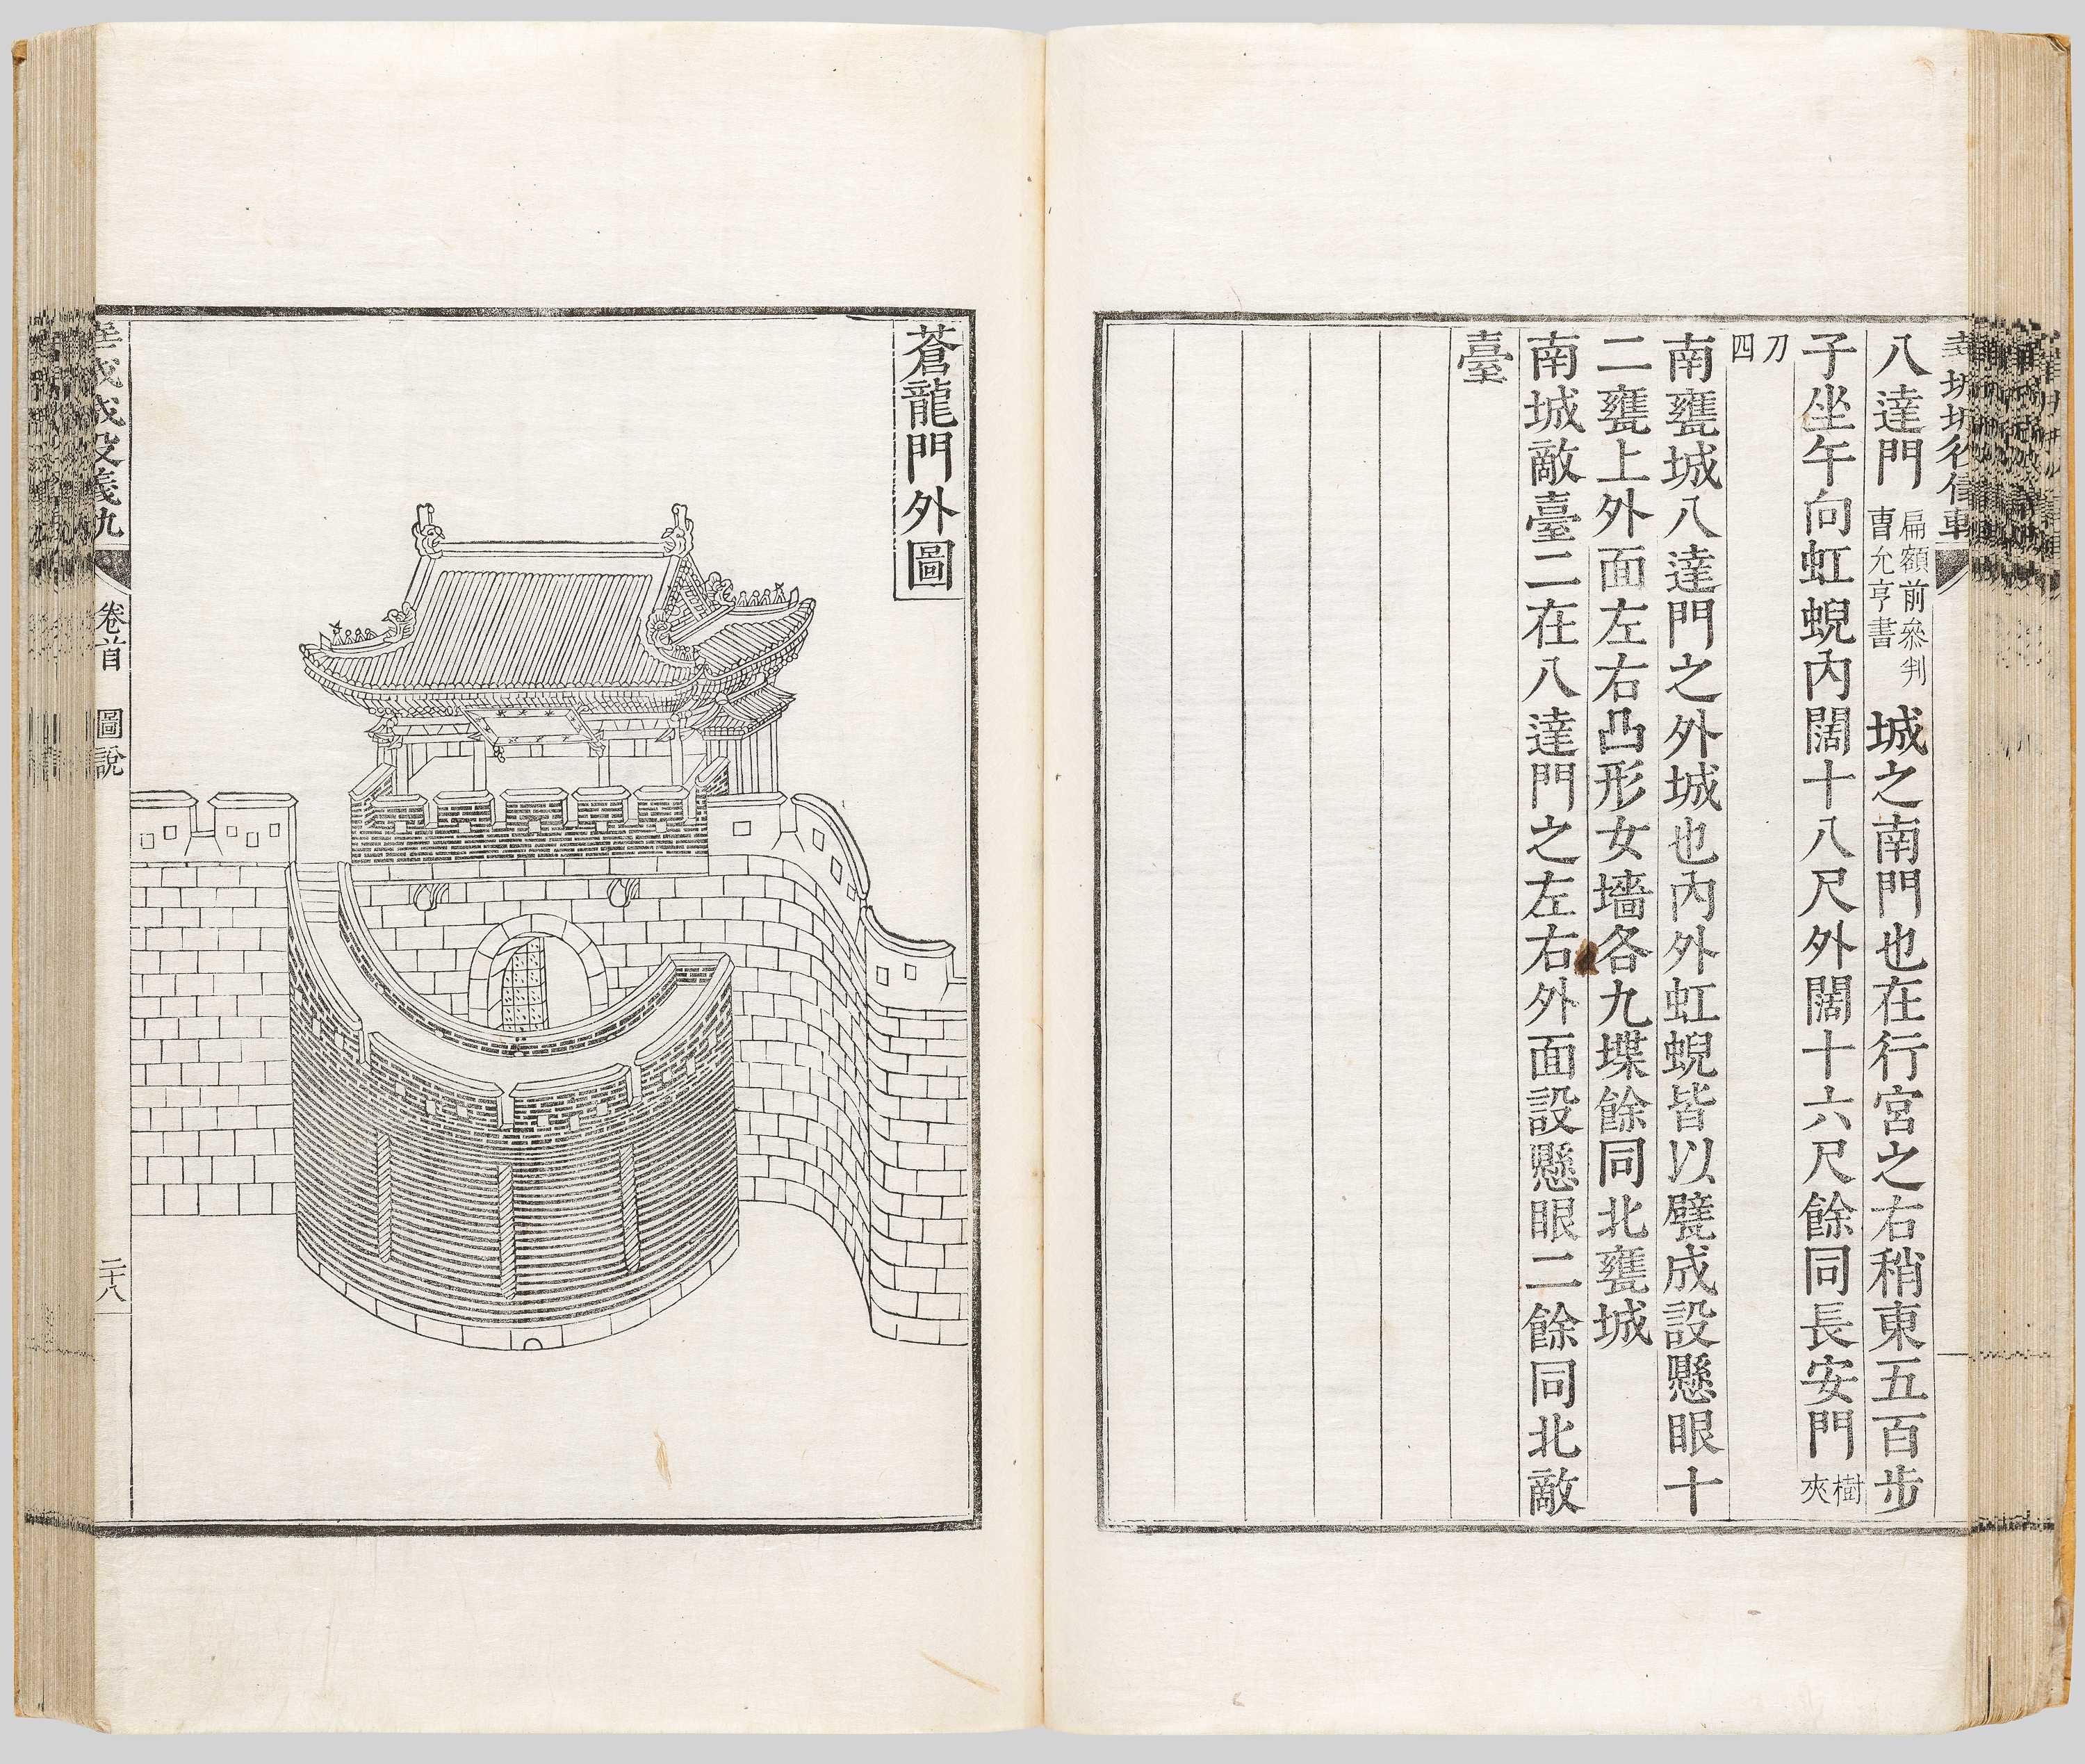 八達門 扁額前叅判曺允亨書 城之南門也在行宮之右稍東五百步
子坐午向虹蜺內闊十八尺外闊十六尺餘同長安門 樹夾
刀四
南甕城八達門之外城也內外虹蜺皆以甓成設懸眼十
二甕上外面左右凸形女墻各九堞餘同北甕城
南城敵臺二在八達門之左右外面設懸眼二餘同北敵
臺
蒼龍門外圖
卷首 圖說
二十八